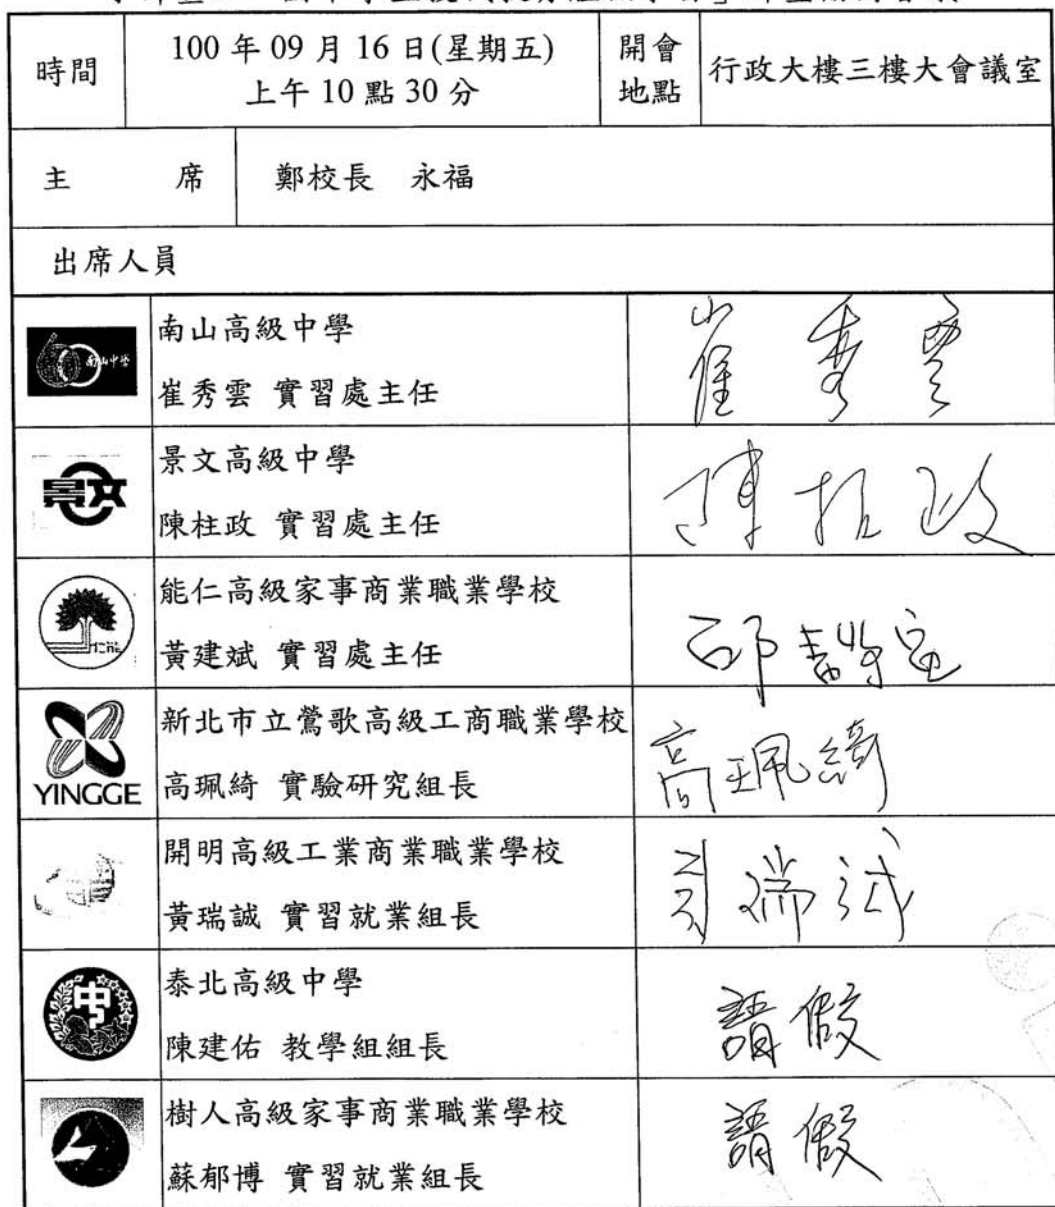 時間
100 年 09 月 16 日(星期五)
上午 10 點 30 分
開會
地點
行政大樓三樓大會議室
主 席
鄭校長 永福
出席人員
南山中學
南山高級中學
崔秀雲 實習處主任
崔秀雲
景文
景文高級中學
陳柱政 實習處主任
陳柱政
仁能
能仁高級家事商業職業學校
黃建斌 實習處主任
邱
YINGGE
新北市立鶯歌高級工商職業學校
高珮綺 實驗研究組長
高珮綺
開明高級工業商業職業學校
黃瑞誠 實習就業組長
瑞誠
中
泰北高級中學
陳建佑 教學組組長
請假
樹人高級家事商業職業學校
蘇郁博 實習就業組長
請假